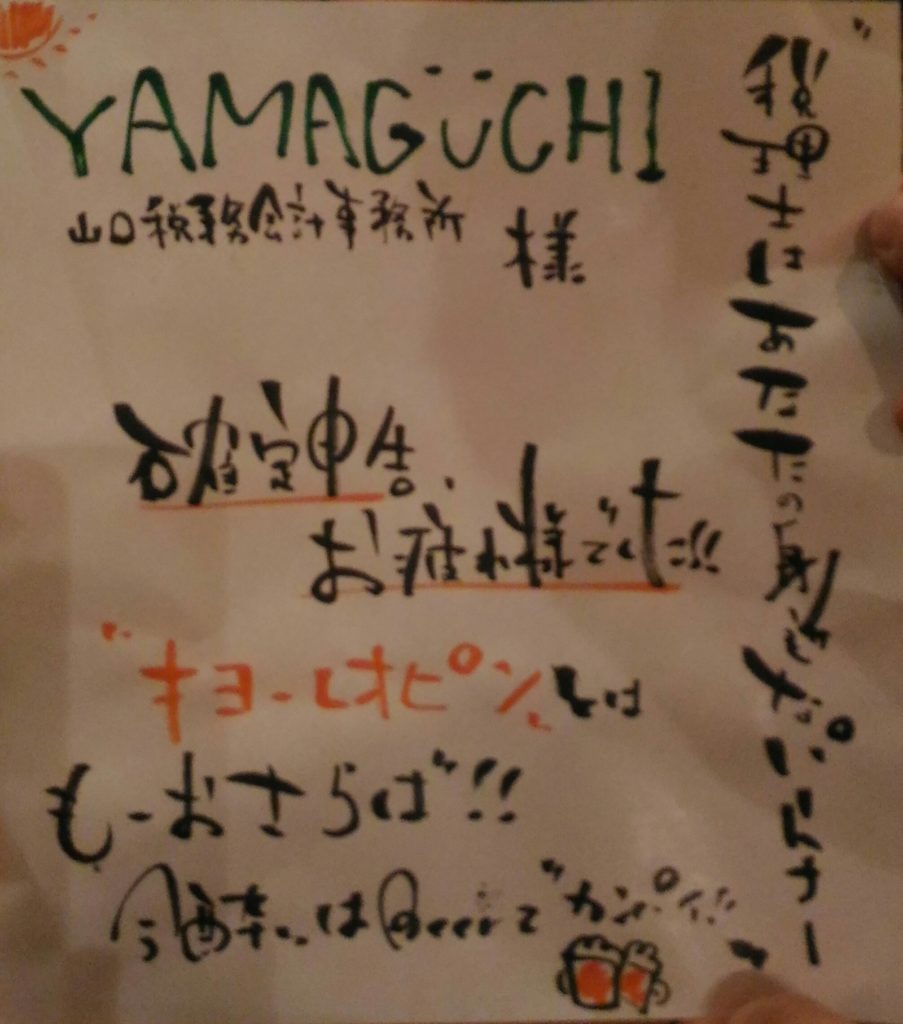 YAMAGÜCHI
山口税務会計事務所 様
確定申告、
お疲れ様でした!!
"キヨーレオピン"とは
もーおさらば!!
今酔いはBeerでカンパイ!!
"税理士はあなたの身近なパートナー"